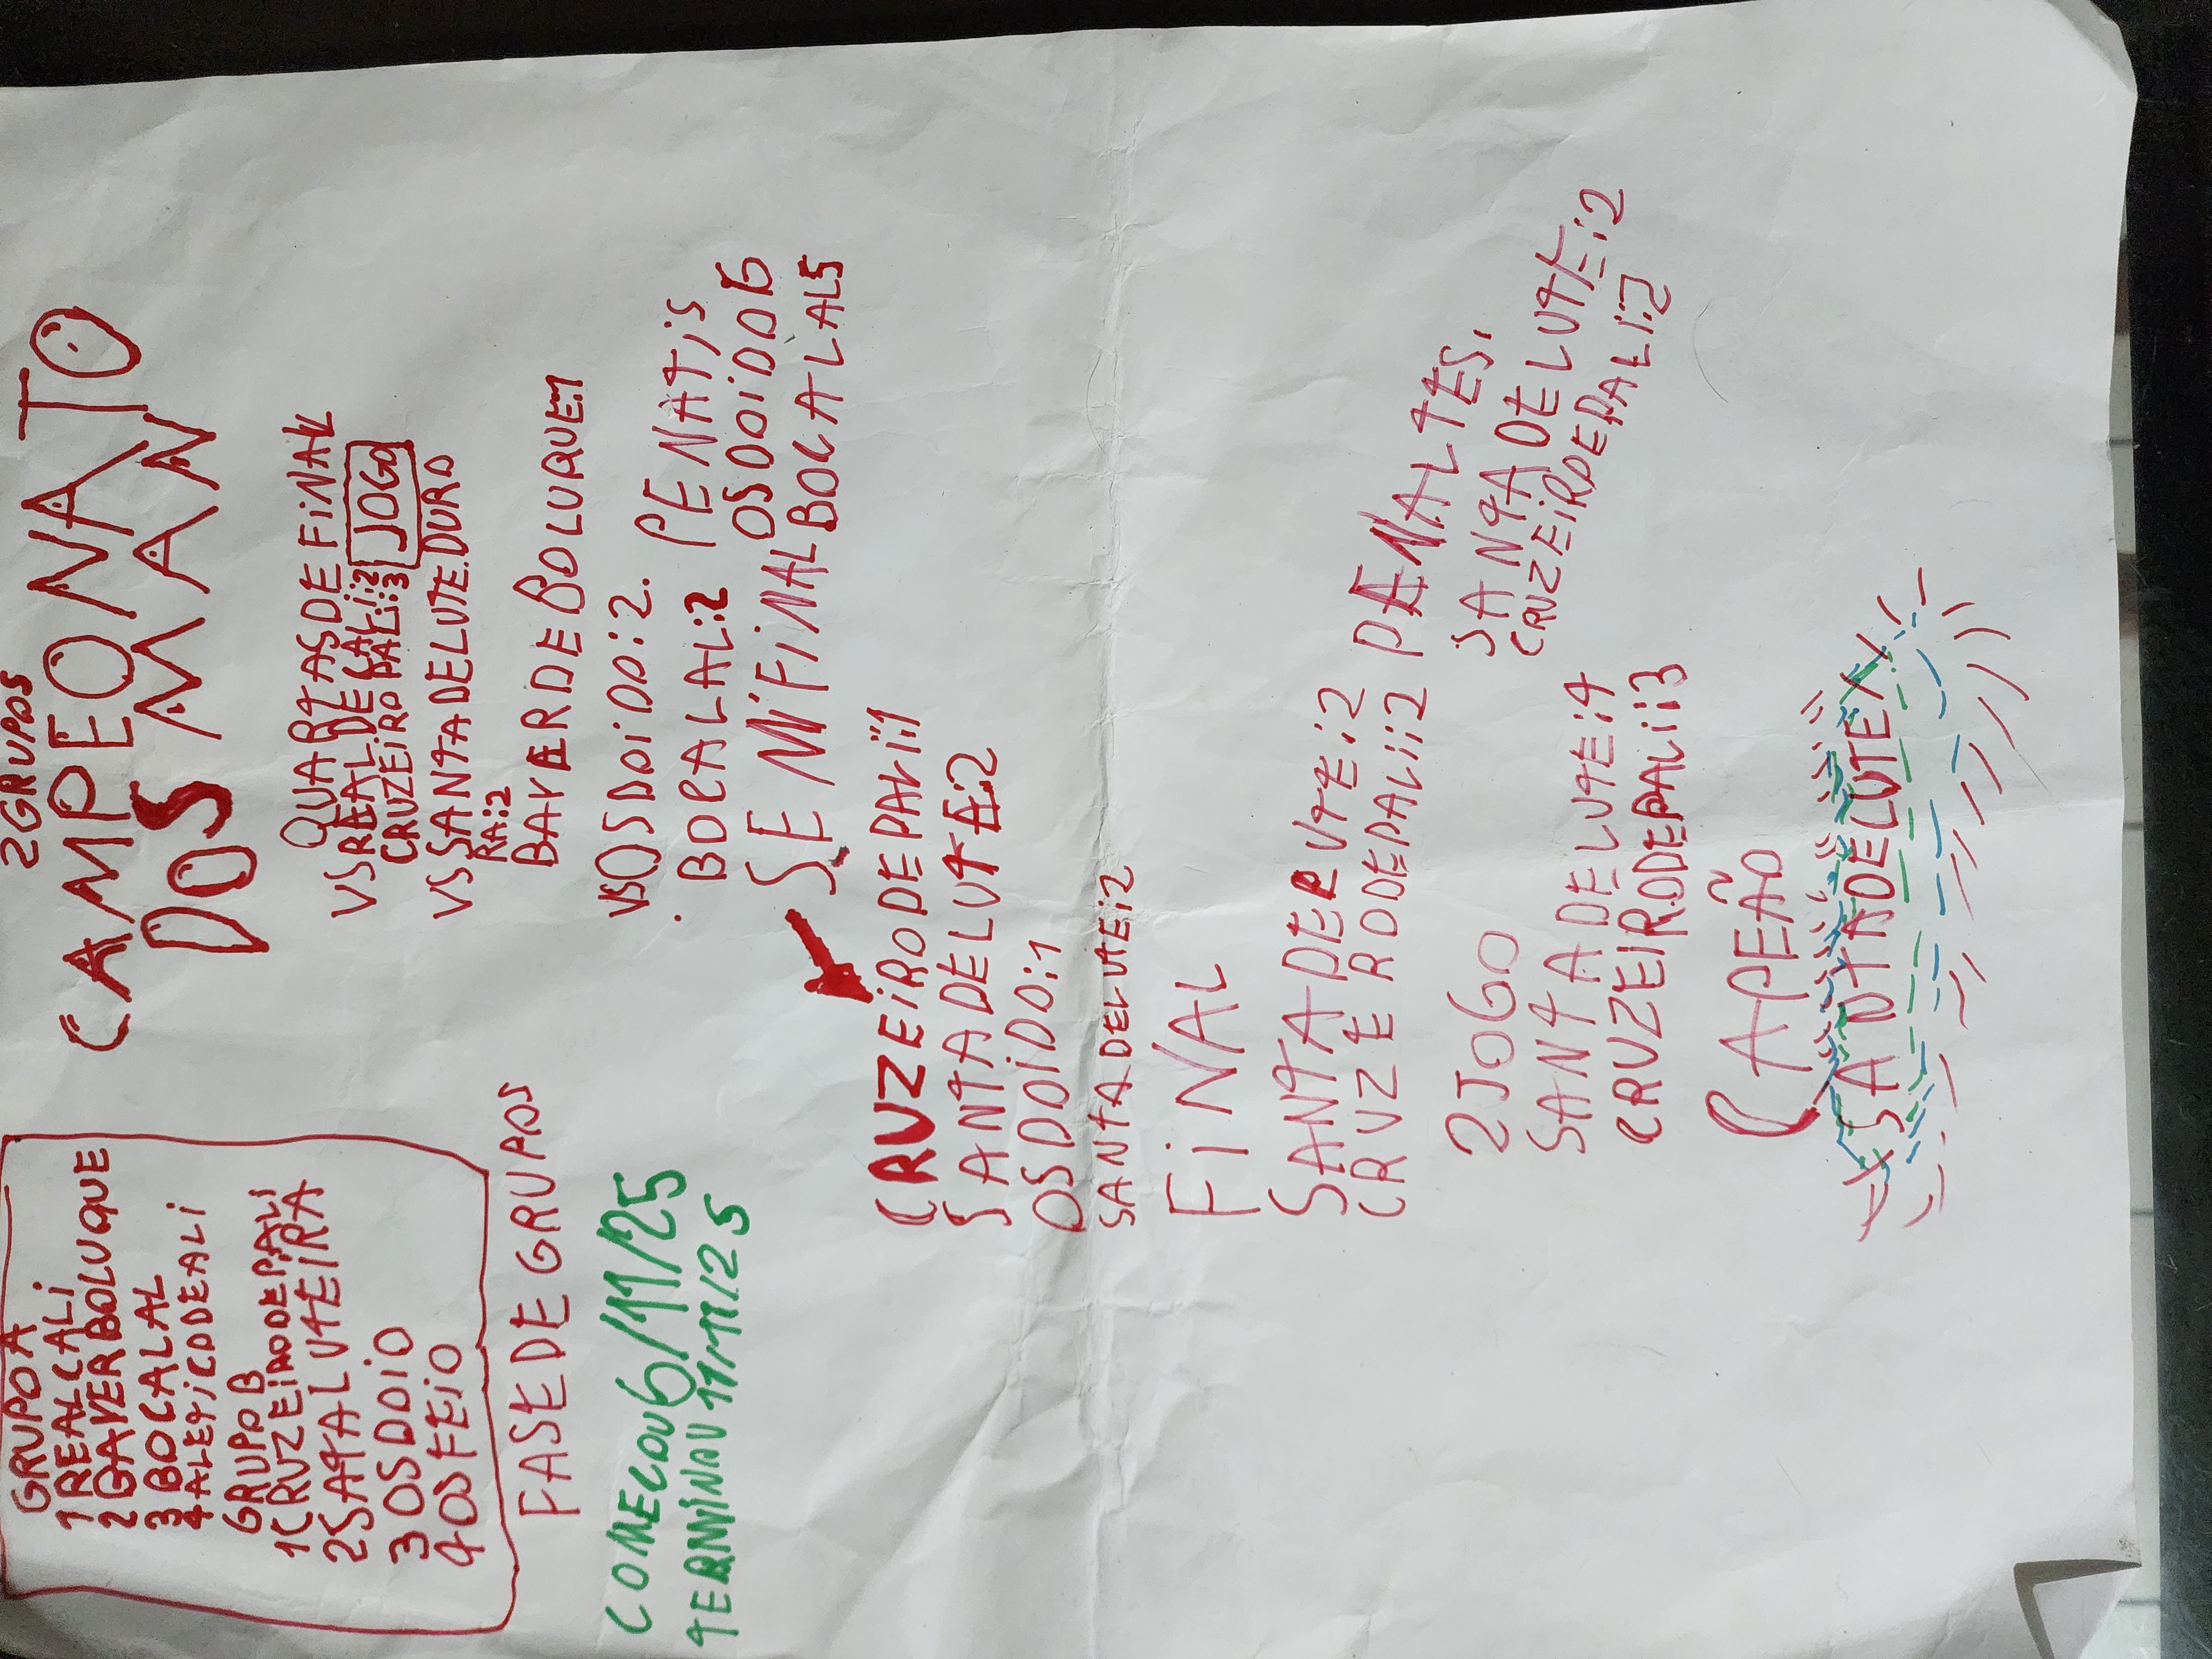 2GRUPOS
CAMPEONATO
DOS MANO
GRUPO A
1 REALCALI
2 GAVERBOLUQUE
3 BOCALAL
4 ALETiCODEALi
GRUPO B
1CRUZEiRODEPALi
2SATALUTEiRA
3 OSDDiO
4 OSFEiO
FASE DE GRUPOS
COMECOU 6/11/25
TERMiNOU 11/11/25
QUARTAS DE FiNAL
VS REAL DE CALi:2
CRUZEiRO PALi:3 JOGO
VS SANTA DE LUTE.DURO
RA:2
BAVERDEBOLUQUE:1
VS OSDOiDO:2. PENATiS
BOCALAL:2 OSDOiDO6
SEMiFiNAL BOCALAL5
CRUZEiRODEPALi:1
SANTADELUTE:2
OSDOiDO:1
SANTADELUTE:2
FiNAL
SANTADELUTE:2
CRUZERODEPALi:2 PENALTES.
SANTADELUTE:2
CRUZEiRDEPALi:2
2JOGO
SANTADELUTE:4
CRUZEIRODEPALi:3
CAPEÃO
SANTADELUTE